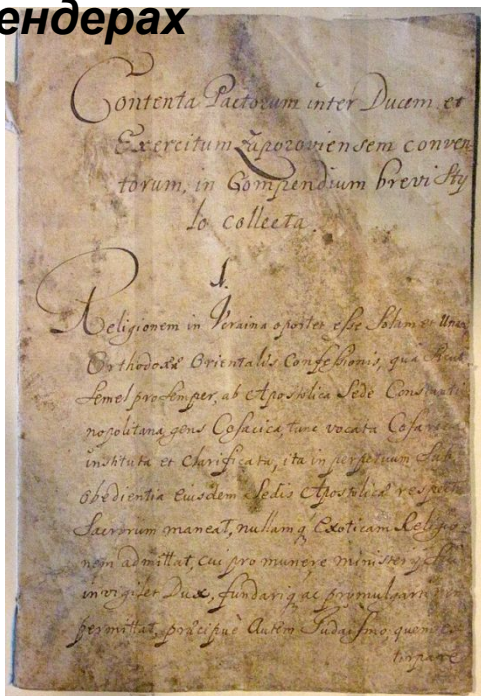 ендерах
Contenta Pactorum inter Ducem et
Exercitum Zaporoviensem conven
torum, in Compendium brevi Sty
lo collecta.
1.
Religionem in Ucraina oportet esse Solam et Unam
Orthodoxæ Orientalis Confessionis, quâ sicut
semel pro semper, ab Apostolica Sede Constanti
nopolitana, gens Cosacica, tunc vocata
instituta et Clarificata, ita in perpetuum sub
obedientia eiusdem Sedis Apostolicæ
Sacrorum maneat, nullamq Exoticam Religio
nem admittat, cui pro munere
invigilet Dux, fundariq ac promulgari
permittat, præcipuè Autem Judaismo, quem
tirpare